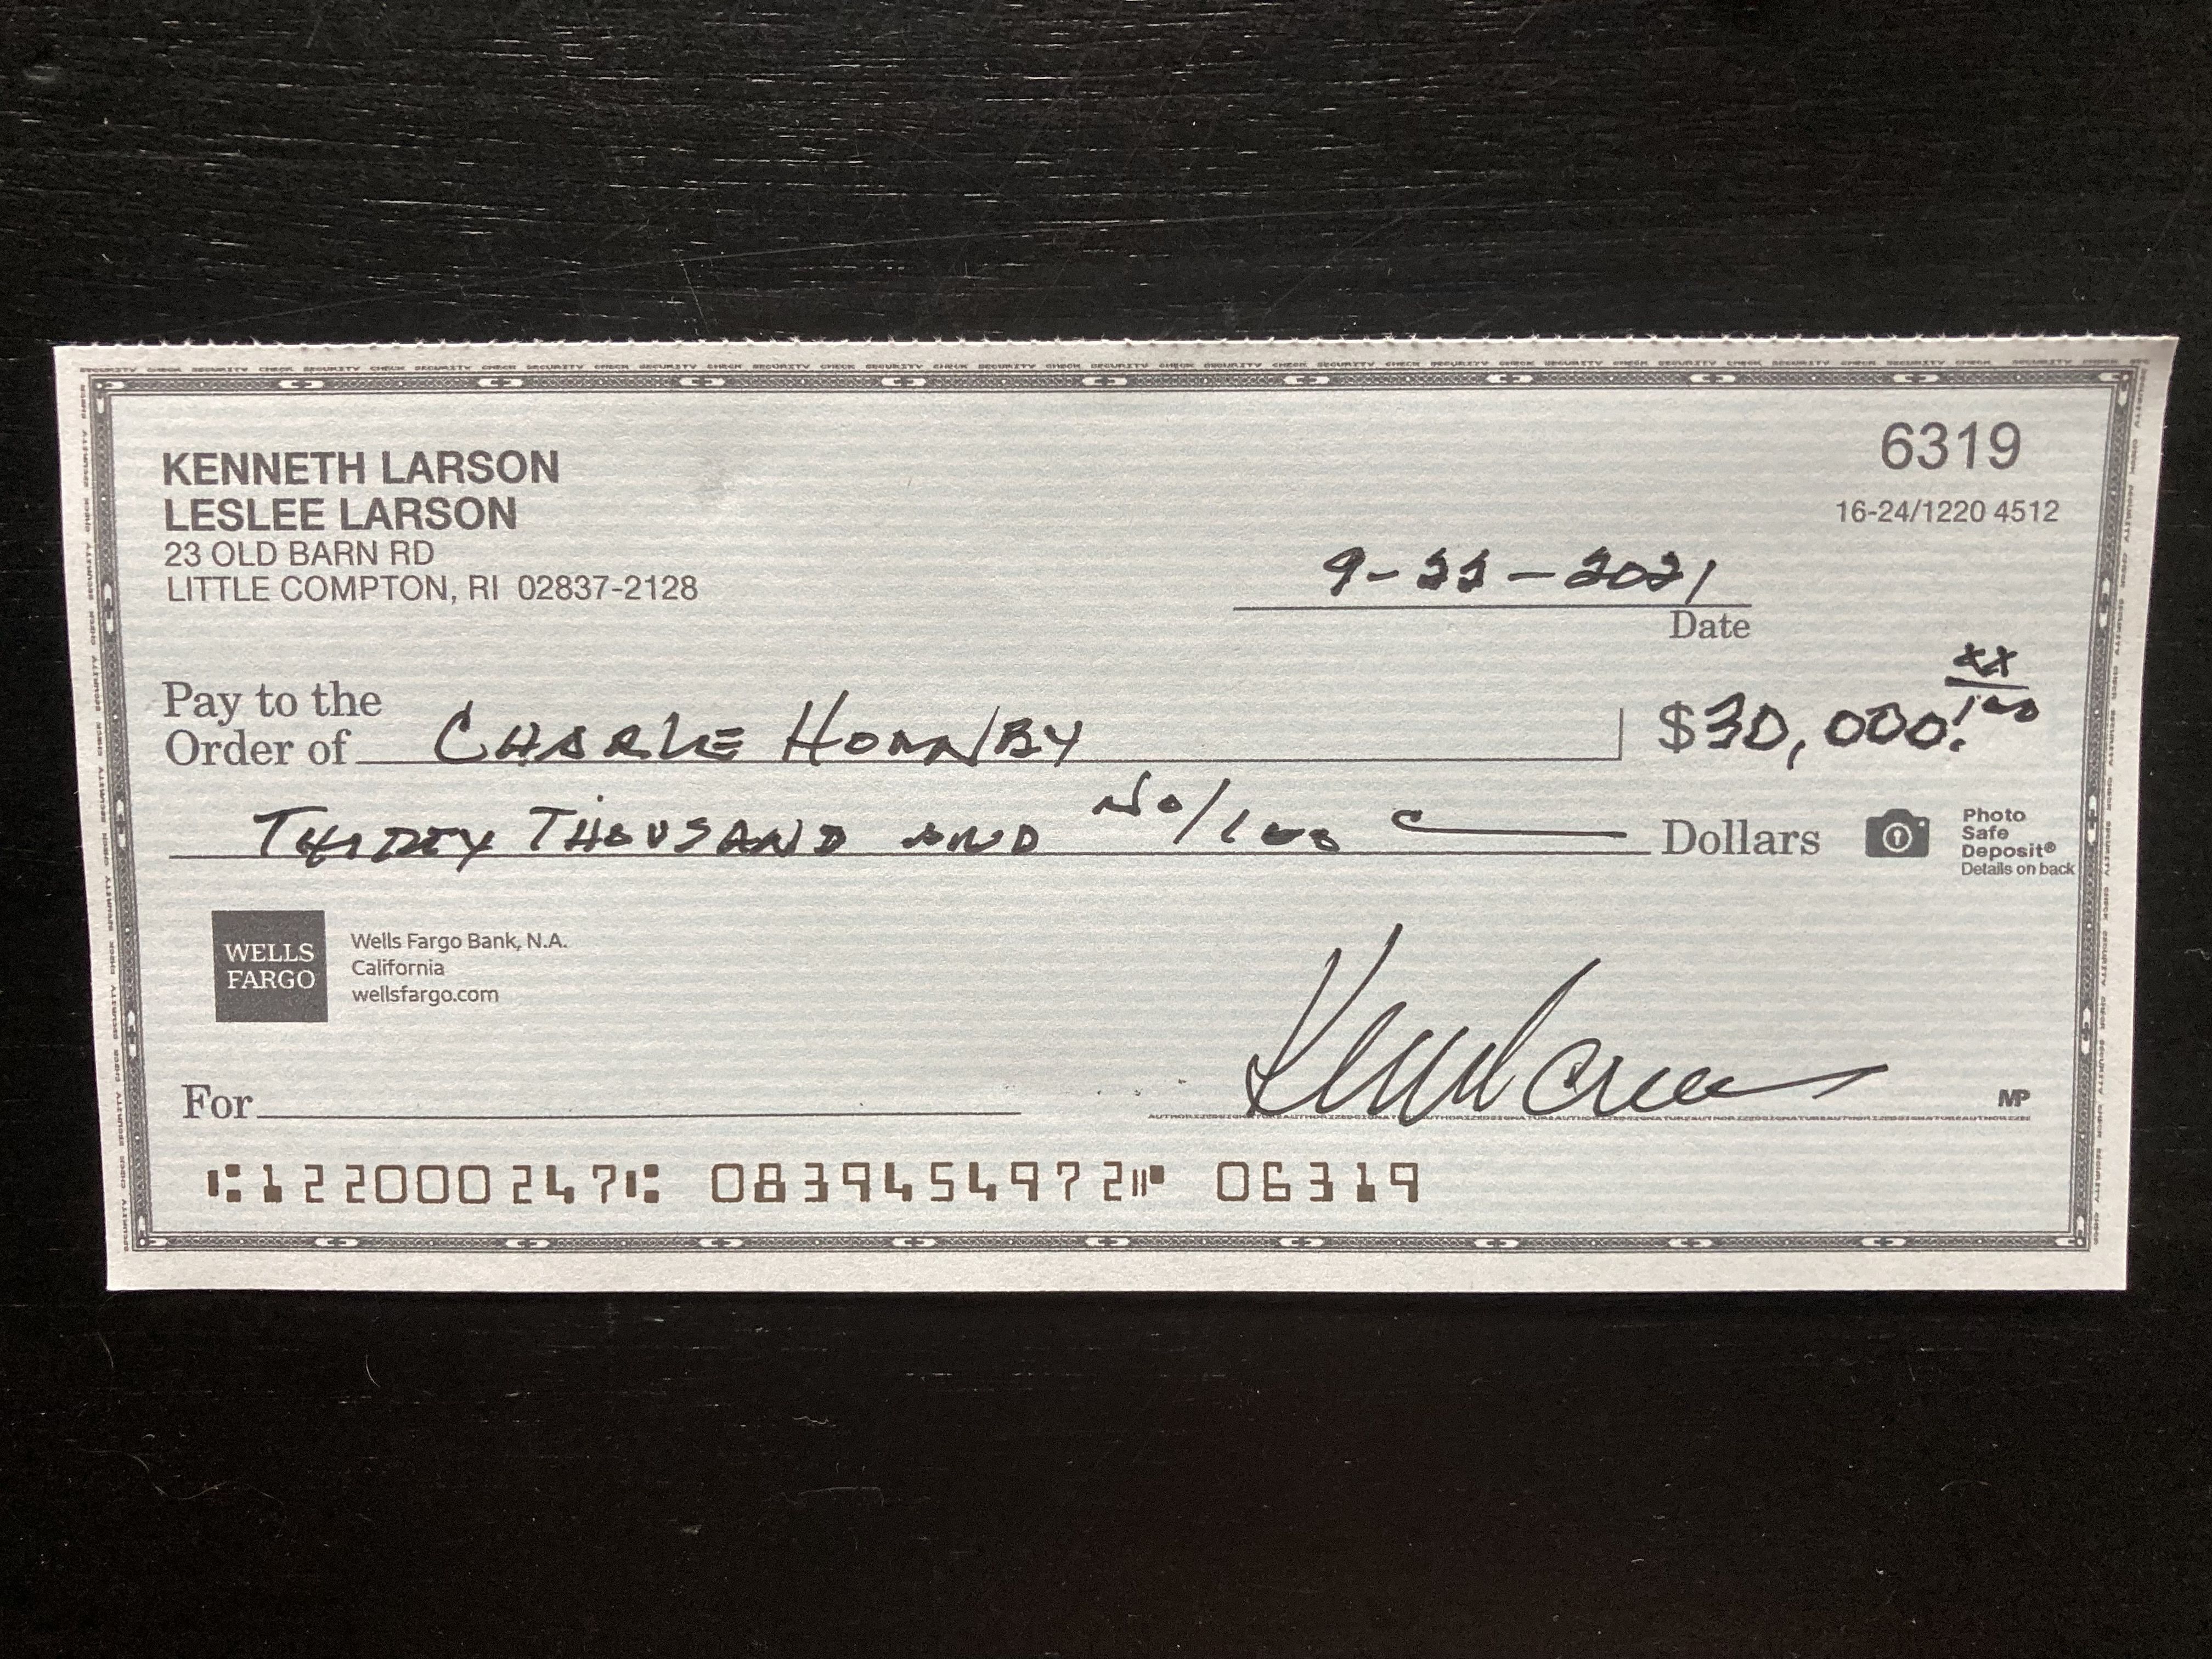 KENNETH LARSON
LESLEE LARSON
23 OLD BARN RD
LITTLE COMPTON, RI 02837-2128
6319
16-24/1220 4512
9-22-2021
Date
Pay to the
Order of CHARLIE HORNBY $30,000. xx/100
THIRTY THOUSAND AND No/100 Dollars
Photo
Safe
Deposit®
Details on back
WELLS
FARGO
Wells Fargo Bank, N.A.
California
wellsfargo.com
For
MP
122000247 0839454972 06319